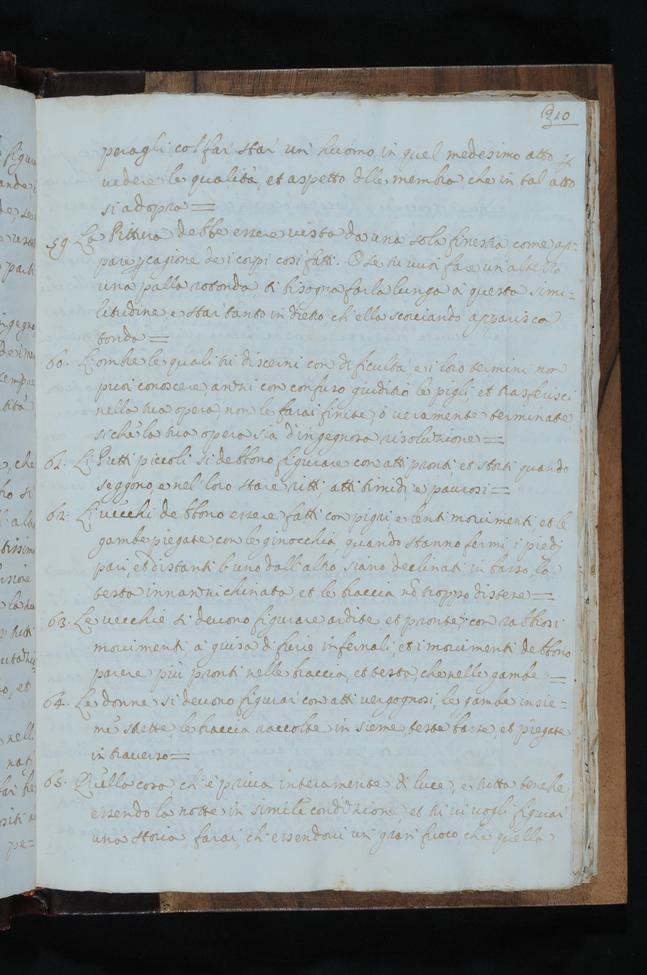 310
peragli col far star un huomo in quel medesimo atto
vedere le qualità, et aspetto dlle membra, che in tal atto
si adopra =
59. La Pittura debbe essere vista da una sola finestra come ap=
pare cagione de i corpi così fatti. O se tu vuoi fare un'altezza
una palla rotonda ti bisogna farla lunga à questa simi=
litudine e star tanto in dietro ch'ella scorciando apparisca
tonda =
60. L'ombre le quali tu discerni con dificultà, e i loro termini non
puoi conoscere, anzi con confuso giuditio le pigli, et trasferisci
nella tua opera, non le farai finite, ò veramente terminate
si che la tua opera sia d'ingegnosa risoluzione =
61. Li Putti piccoli si debbono figurare con atti pronti, et storti quando
seggono, e nel loro stare ritti, atti timidi, e paurosi =
62. Li vecchi debbono essere fatti con pigri e lenti movimenti et le
gambe piegate con le ginocchia quando stanno fermi, i piedi
pari, et distanti l'uno dall'altro, siano declinati in basso, la
testa innanzi chinata, et le braccia nō troppo distese =
63. Le vecchie si devono figurare ardite et pronte, con rabbiosi
movimenti, a guisa di furie infernali, et i movimenti debbono
parere più pronti nelle braccia, et testa, che nelle gambe =
64. Le donne si devono figurar con atti vergognosi, le gambe insie=
me strette, le braccia raccolte in sieme, teste basse, et piegate
in traverso =
65. Quella cosa ch'è priva interamente di luce, è tutta tenebre
essendo la notte in simile condizione, et tu vi vogli figurar
una storia farai, ch'essendovi un gran fuoco che quella